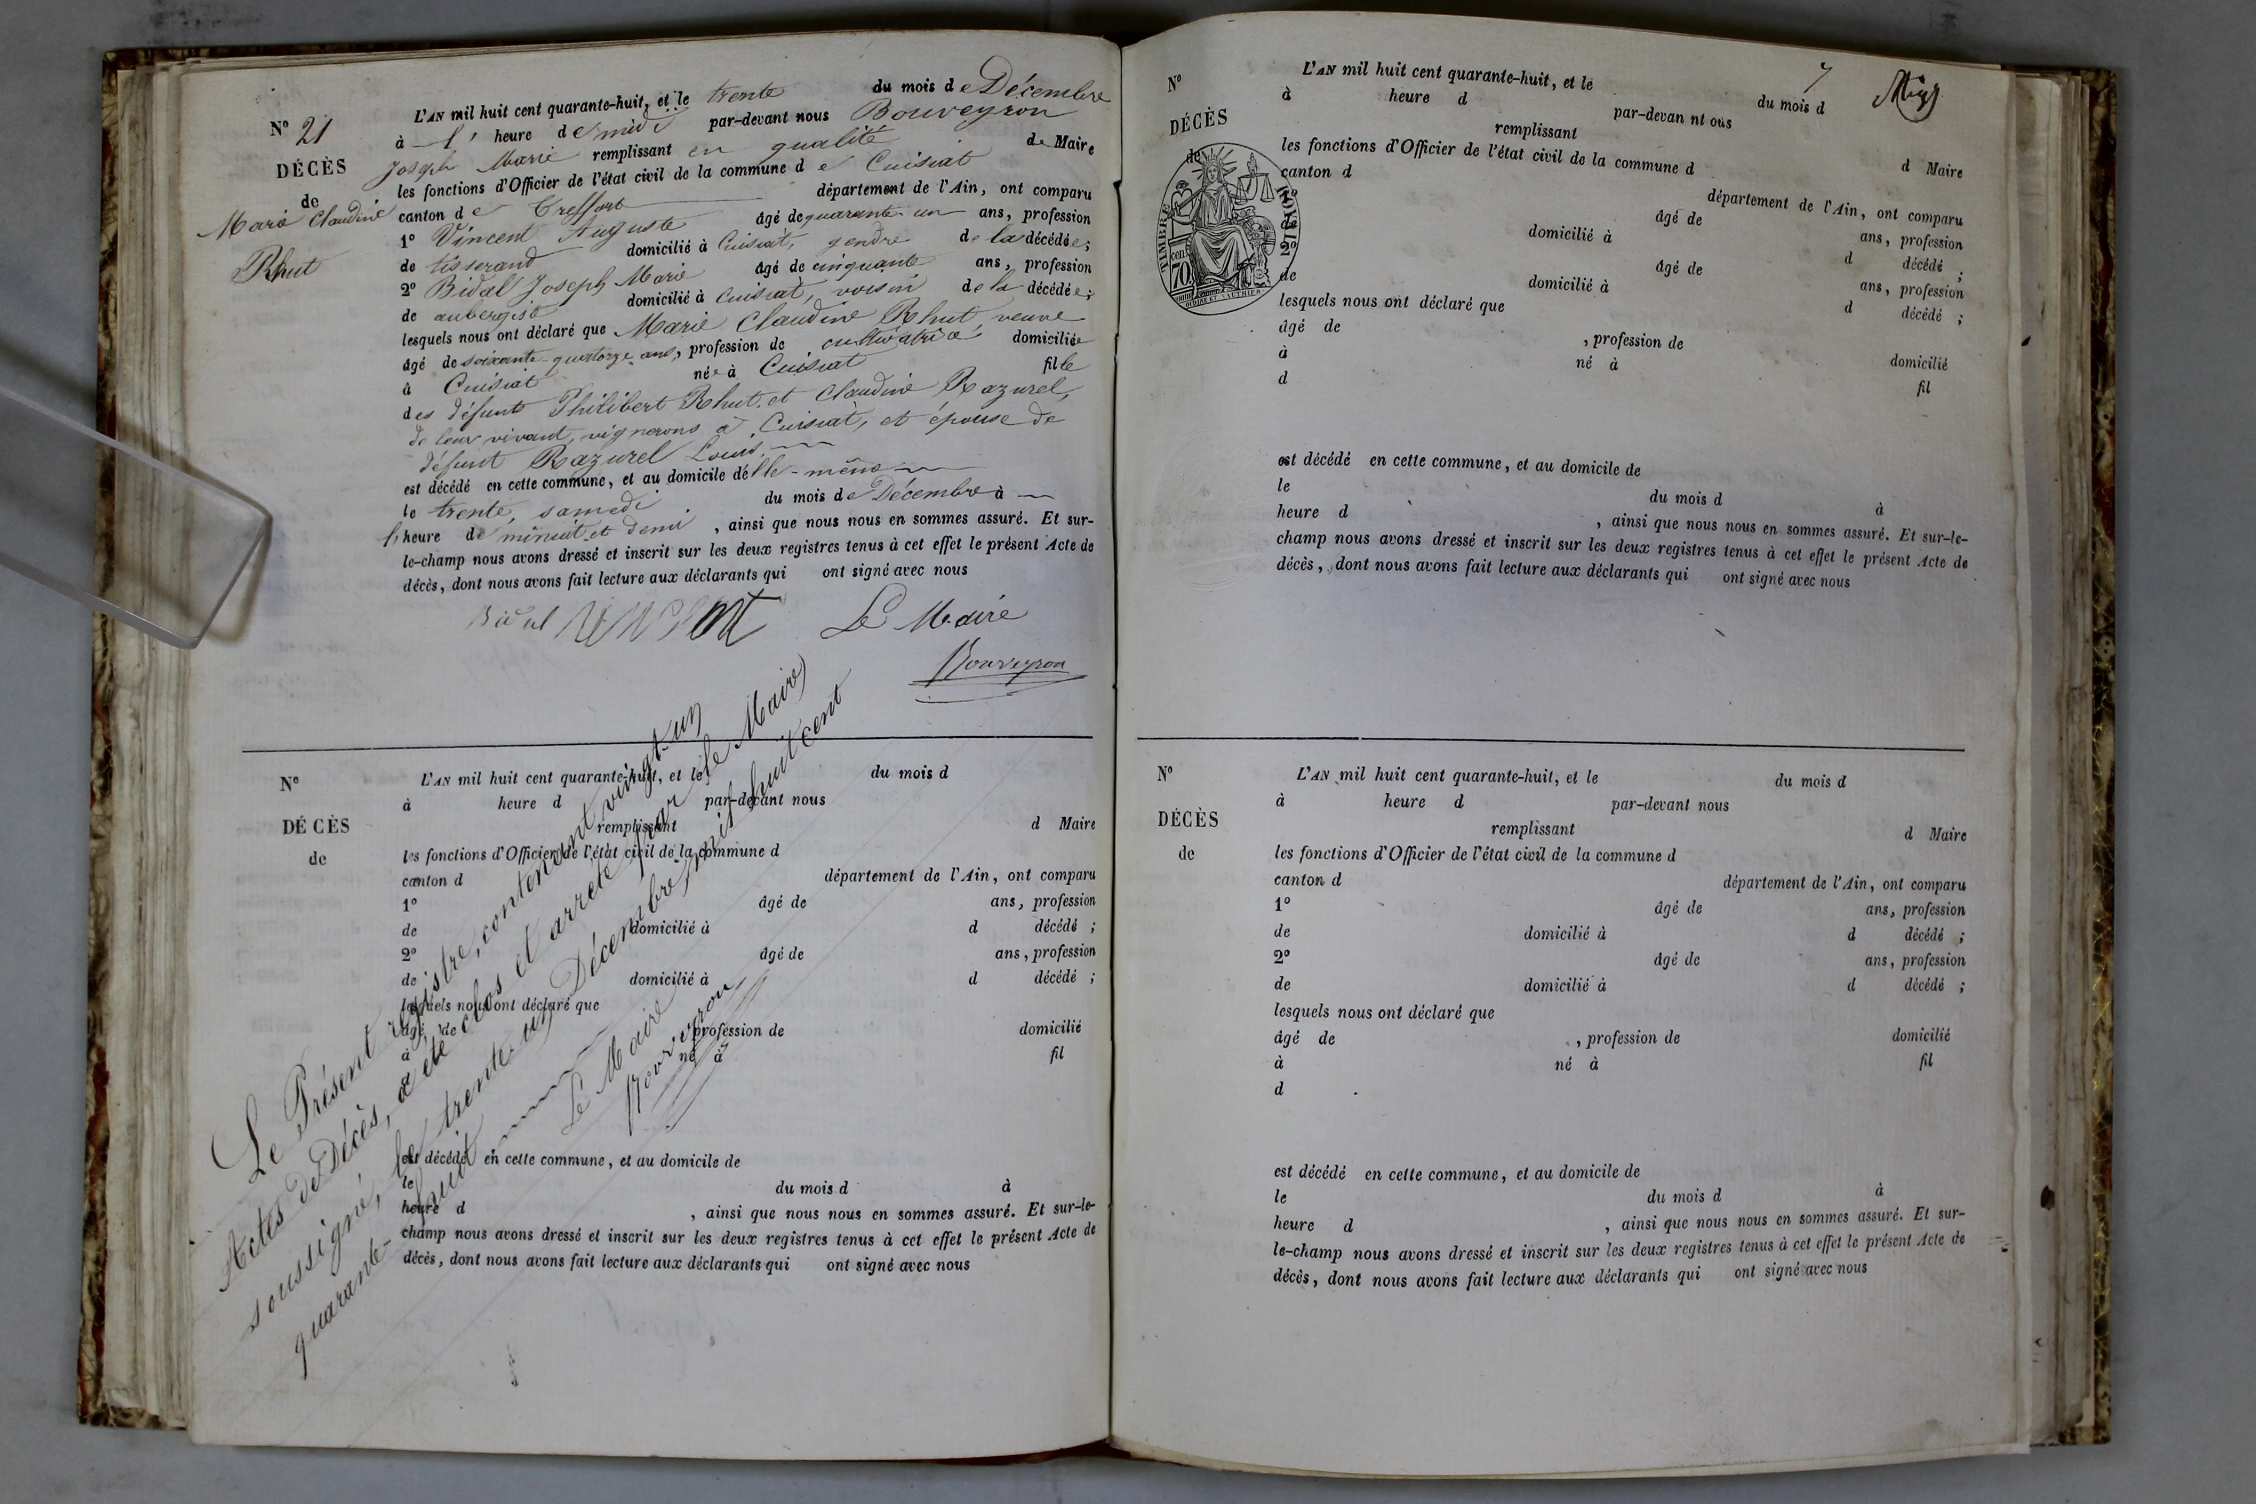 N° 21
DÉCÈS
de
Marie Claudine
Rhut
L'AN mil huit cent quarante-huit, et le trente du mois de Décembre
à l' heure de midi par-devant nous Bouveyron
Joseph Marie remplissant en qualité de Maire
les fonctions d'Officier de l'état civil de la commune de Cuisiat
canton de Treffort département de l'Ain, ont comparu
1° Vincent Auguste âgé de quarante-un ans, profession
de tisserand domicilié à Cuisiat, gendre de la décédée;
2° Bidal Joseph Marie âgé de cinquante ans, profession
de aubergiste domicilié à Cuisiat, voisin de la décédée;
lesquels nous ont déclaré que Marie Claudine Rhut veuve
âgé de soixante-quatorze ans, profession de cultivatrice domiciliée
à Cuisiat née à Cuisiat fille
des défunts Philibert Rhut et Claudine Razurel,
de leur vivant, vignerons à Cuisiat, et épouse de
défunt Razurel Louis
est décédé en cette commune, et au domicile d'elle-même
le trente, samedi du mois de Décembre à
l'heure de minuit et demi, ainsi que nous nous en sommes assuré. Et sur-
le-champ nous avons dressé et inscrit sur les deux registres tenus à cet effet le présent Acte de
décès, dont nous avons fait lecture aux déclarants qui ont signé avec nous
Bidal Vincent Le Maire
Bouveyron
N°
DÉCÈS
de
L'AN mil huit cent quarante-huit, et le du mois d
à heure d par-devant nous
remplissant d Maire
les fonctions d'Officier de l'état civil de la commune d
canton d département de l'Ain, ont comparu
1° âgé de ans, profession
de domicilié à d décédé ;
2° âgé de ans, profession
de domicilié à d décédé ;
lesquels nous ont déclaré que
âgé de profession de domicilié
à né à fil
est décédé en cette commune, et au domicile de
le du mois d à
heure d , ainsi que nous nous en sommes assuré. Et sur-le-
champ nous avons dressé et inscrit sur les deux registres tenus à cet effet le présent Acte de
décès, dont nous avons fait lecture aux déclarants qui ont signé avec nous
Le Présent registre, contenant vingt-un
Actes de Décès, a été clos et arrêté par le Maire
soussigné, le trente-un Décembre, mil huit cent
quarante-huit
Le Maire
Bouveyron
7
N°
DÉCÈS
de
TIMBRE
70
cen
L'AN mil huit cent quarante-huit, et le du mois d
à heure d par-devan nt ous
remplissant d Maire
les fonctions d'Officier de l'état civil de la commune d
canton d département de l'Ain, ont comparu
âgé de ans, profession
domicilié à d décédé ;
âgé de ans, profession
de domicilié à d décédé ;
lesquels nous ont déclaré que
âgé de , profession de domicilié
à né à fil
d
est décédé en cette commune, et au domicile de
le du mois d à
heure d , ainsi que nous nous en sommes assuré. Et sur-le-
champ nous avons dressé et inscrit sur les deux registres tenus à cet effet le présent Acte de
décès, dont nous avons fait lecture aux déclarants qui ont signé avec nous
N°
DÉCÈS
de
L'AN mil huit cent quarante-huit, et le du mois d
à heure d par-devant nous
remplissant d Maire
les fonctions d'Officier de l'état civil de la commune d
canton d département de l'Ain, ont comparu
1° âgé de ans, profession
de domicilié à d décédé ;
2° âgé de ans, profession
de domicilié à d décédé ;
lesquels nous ont déclaré que
âgé de , profession de domicilié
à né à fil
d
est décédé en cette commune, et au domicile de
le du mois d à
heure d , ainsi que nous nous en sommes assuré. Et sur-
le-champ nous avons dressé et inscrit sur les deux registres tenus à cet effet le présent Acte de
décès, dont nous avons fait lecture aux déclarants qui ont signé avec nous